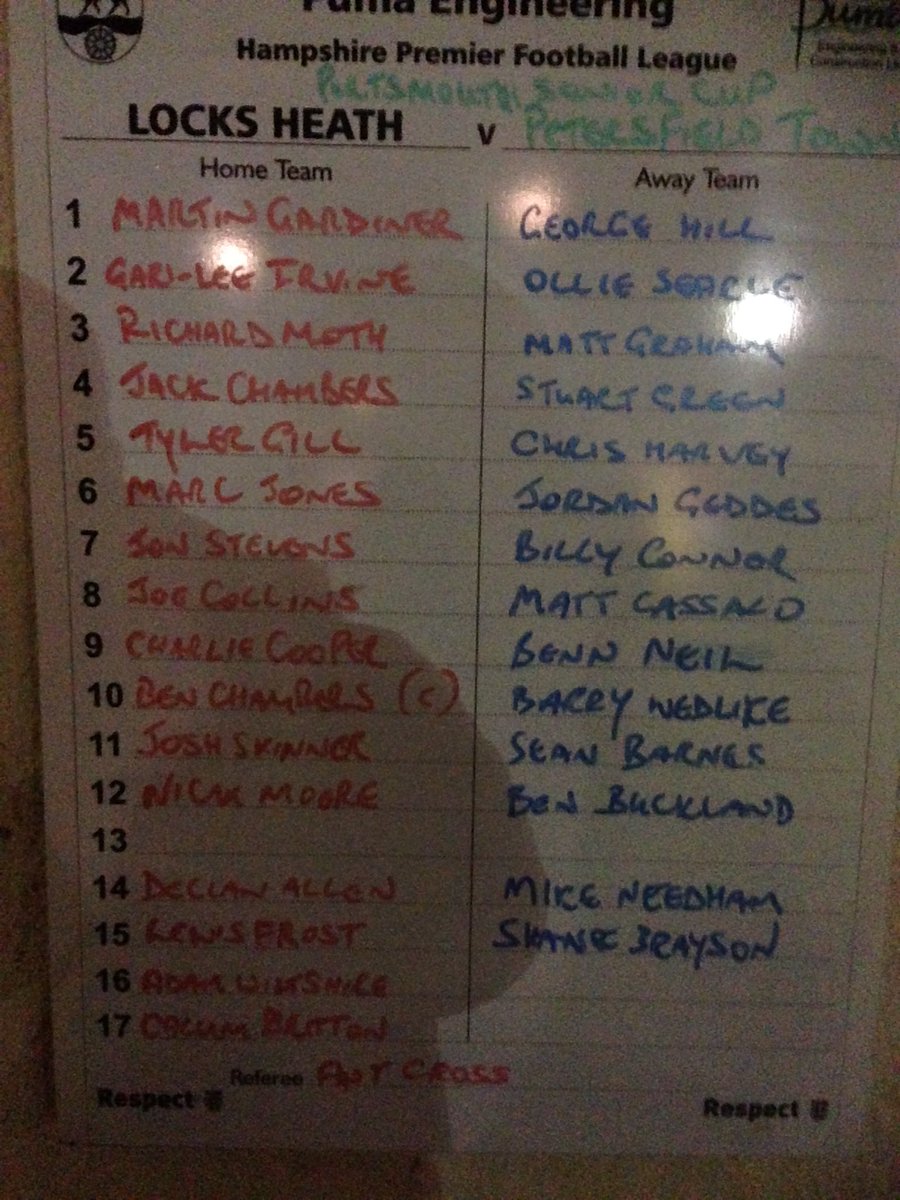 Puma Engineering
Puma
Engineering &
Construction Ltd
Hampshire Premier Football League
PORTSMOUTH SENIOR CUP
LOCKS HEATH v PETERSFIELD TOWN
Home Team Away Team
1 MARTIN GARDINER GEORGE HILL
2 GARI-LEE IRVINE OLLIE SEARLE
3 RICHARD MOTH MATT GRAHAM
4 JACK CHAMBERS STUART GREEN
5 TYLER GILL CHRIS HARVEY
6 MARC JONES JORDAN GEDDES
7 JON STEVENS BILLY CONNOR
8 JOE COLLINS MATT CASSALO
9 CHARLIE COOPER BENN NEIL
10 BEN CHAMBERS (C) BARRY WEDLIKE
11 JOSH SKINNER SEAN BARNES
12 NICK MOORE BEN BUCKLAND
13
14 DECLAN ALLEN MIKE NEEDHAM
15 LEWIS FROST SHANE BRAYSON
16 ADAM WILTSHIRE
17 CALLUM BRITTON
Referee ANT CROSS
Respect Respect